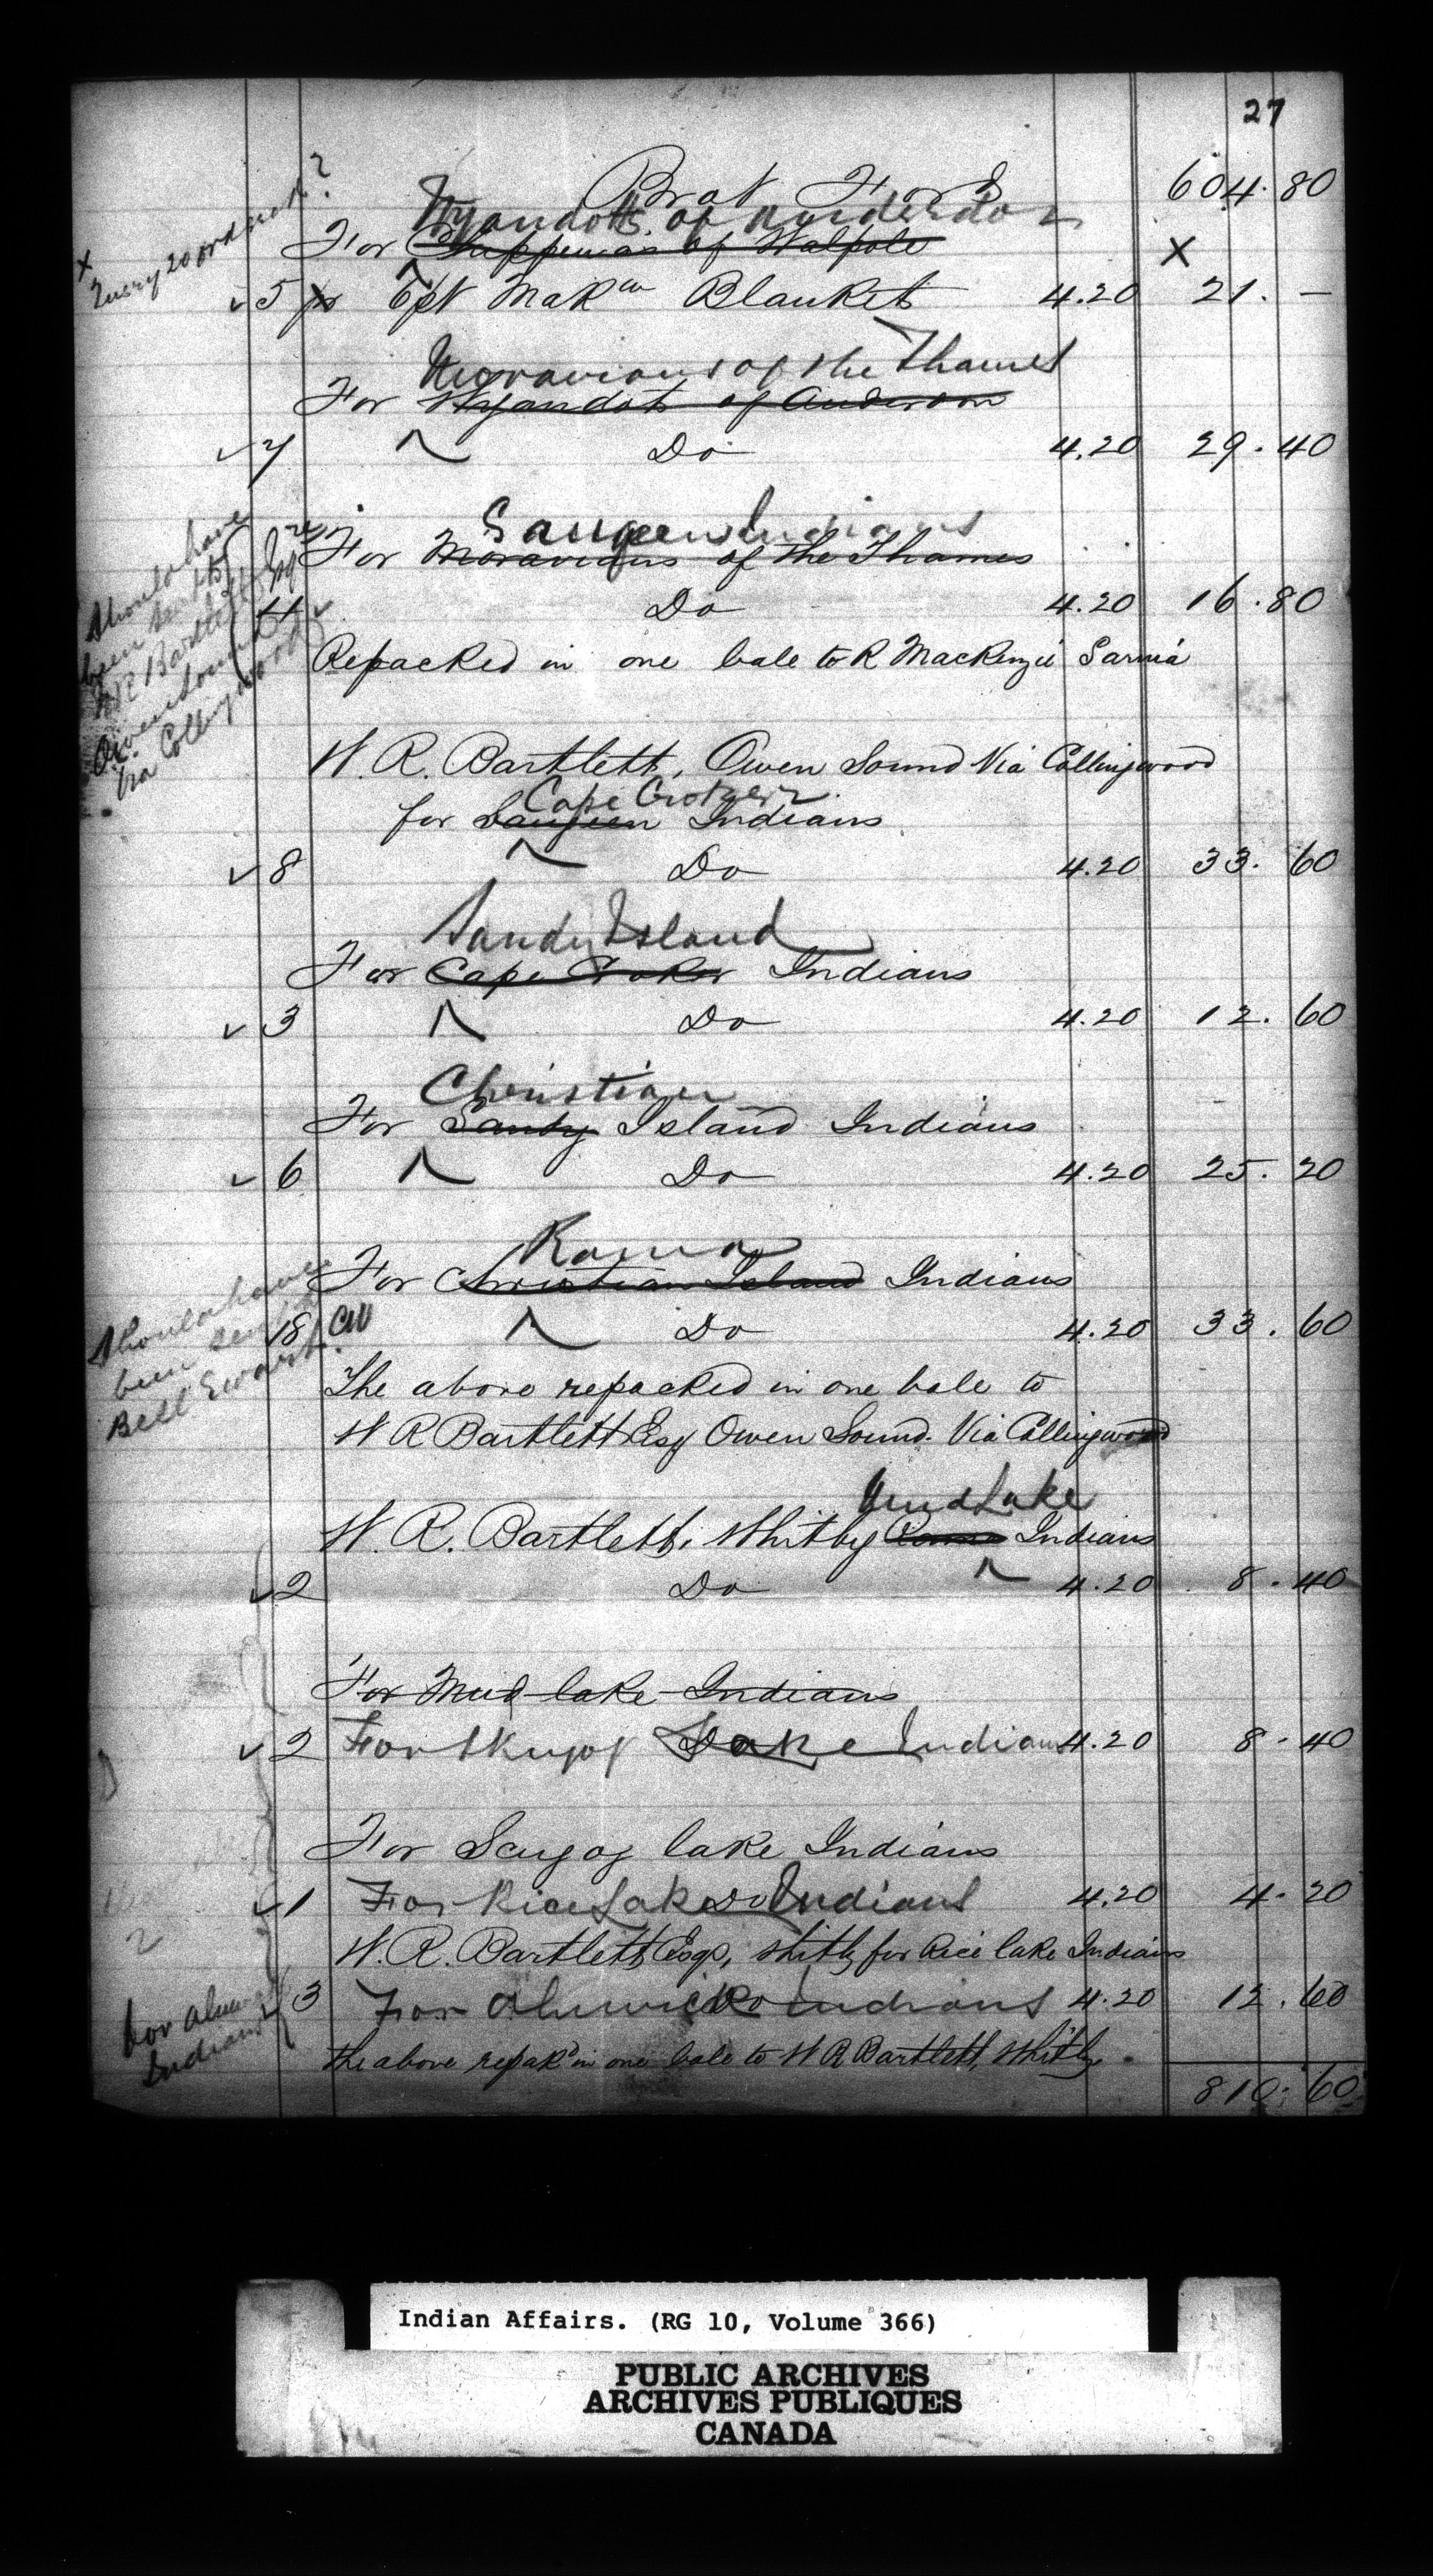 27
Brot Ford 604.80
Wyandotts of Anderdon
For Chippewas of Walpole X
X Query 20 ord
✓ 5 pr 6 pt Mak^aw Blankets 4.20 21. —
Moravians of the Thames
For Wyandots of Anderdon
✓ 7 Do 4.20 29.40
Saugeen Indians
For Moravians of the Thames
4 Do 4.20 16.80
Should have
been sent to
W R Bartlett Esqre
Owen Sound
via Collingwood
Repacked in one bale to R Mackenzie Sarnia
W. R. Bartlett, Owen Sound Via Collingwood
Cape Croker
for Saugeen Indians
✓ 8 Do 4.20 33.60
Sandy Island
For Cape Croker Indians
✓ 3 Do 4.20 12.60
Christian
For Sandy Island Indians
✓ 6 Do 4.20 25.20
Rama
For Christian Island Indians
8 Do 4.20 33.60
Should have
been sent to
Bell Ewart.
The above repacked in one bale to
W R Bartlett Esq Owen Sound. Via Collingwood
Mud Lake
W. R. Bartlett, Whitby Rama Indians
✓ 2 Do 4.20 8.40
For Mud lake Indians
✓ 2 For Skugog Lake Indians 4.20 8.40
For Scugog lake Indians
✓ 1 For Rice Lake Do Indians 4.20 4.20
W. R. Bartlett Esqr, Whitby for Rice lake Indians
✓ 3 For Alnwick Do Indians 4.20 12.60
for Alnwick
Indians
the above repak'd in one bale to W R Bartlett, Whitby.
810.60
Indian Affairs. (RG 10, Volume 366)
PUBLIC ARCHIVES
ARCHIVES PUBLIQUES
CANADA